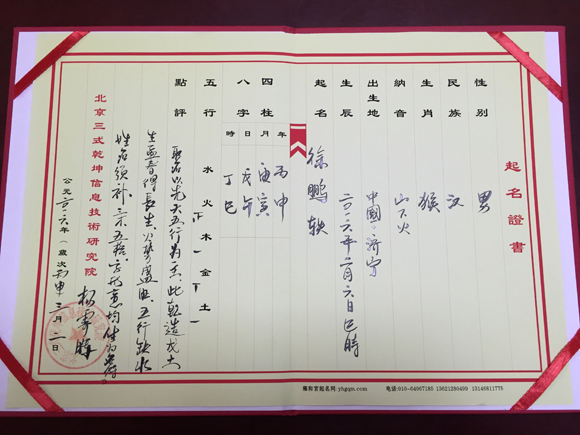 起名證書
性别 男
民族 汉
生肖 猴
納音 山下火
出生地 中國·济宁
生辰 二〇一六年二月六日巳時
起名 徐鹏轶
四柱 年 丙申
月 庚寅
八字 日 戊午
時 丁巳
五行 水 火 木 金 土
點評 取名以先天五行为主，此乾造戊土
生孟春得長生，火势盛
五行缺水
姓名须补
北京三式乾坤信息技術研究院
公元二〇一六年（歲次丙申三月二日
雍和宫起名网:yhgqm.com
电话:010-64067185 13621280499 13146811775